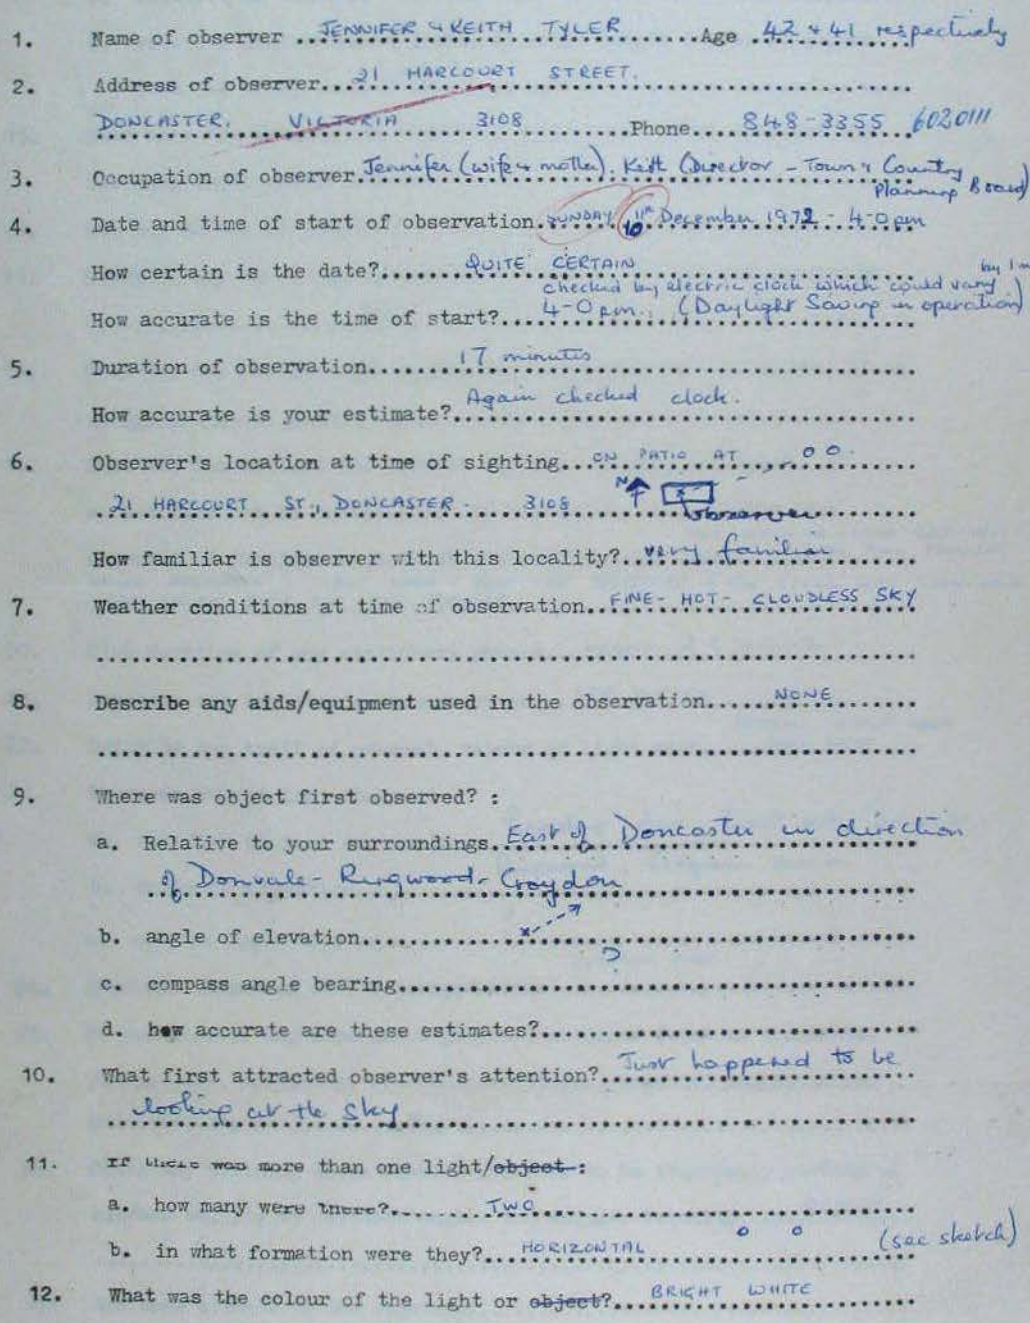 1. Name of observer ..JENNIFER & KEITH TYLER.......Age .42 & 41 respectively
2. Address of observer...21 HARCOURT STREET.
DONCASTER. VICTORIA 3108 .........Phone....848-3355 6020111
3. Occupation of observer.Jennifer (wife & mother). Keith (Director - Town & Country Planning Board)
4. Date and time of start of observation.SUNDAY 10 December 1972 - 4-0 pm
How certain is the date?......QUITE CERTAIN
checked by electric clock which could vary by 1 m
How accurate is the time of start?...4-0 pm. (Daylight Saving in operation)
5. Duration of observation........17 minutes
How accurate is your estimate? Again checked clock.
6. Observer's location at time of sighting...ON PATIO AT
21 HARCOURT ST., DONCASTER. 3108 N observer
How familiar is observer with this locality?..very familiar
7. Weather conditions at time of observation..FINE- HOT- CLOUDLESS SKY
8. Describe any aids/equipment used in the observation......NONE
9. Where was object first observed? :
a. Relative to your surroundings.East of Doncaster in direction
of Donvale- Ringwood- Croydon
b. angle of elevation
c. compass angle bearing
d. how accurate are these estimates?
10. What first attracted observer's attention? Just happened to be
looking at the sky
11. If there was more than one light/object :
a. how many were there?........TWO
b. in what formation were they?...HORIZONTAL (see sketch)
12. What was the colour of the light or object?...BRIGHT WHITE